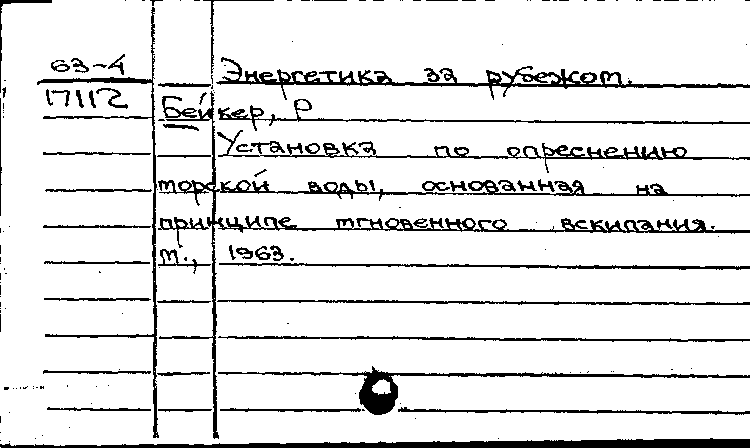 63-4 Энергетика за рубежом.
17112 Бейкер, Р
Установка по опреснению
морской воды, основанная на
принципе мгновенного вскипания.
М., 1963.